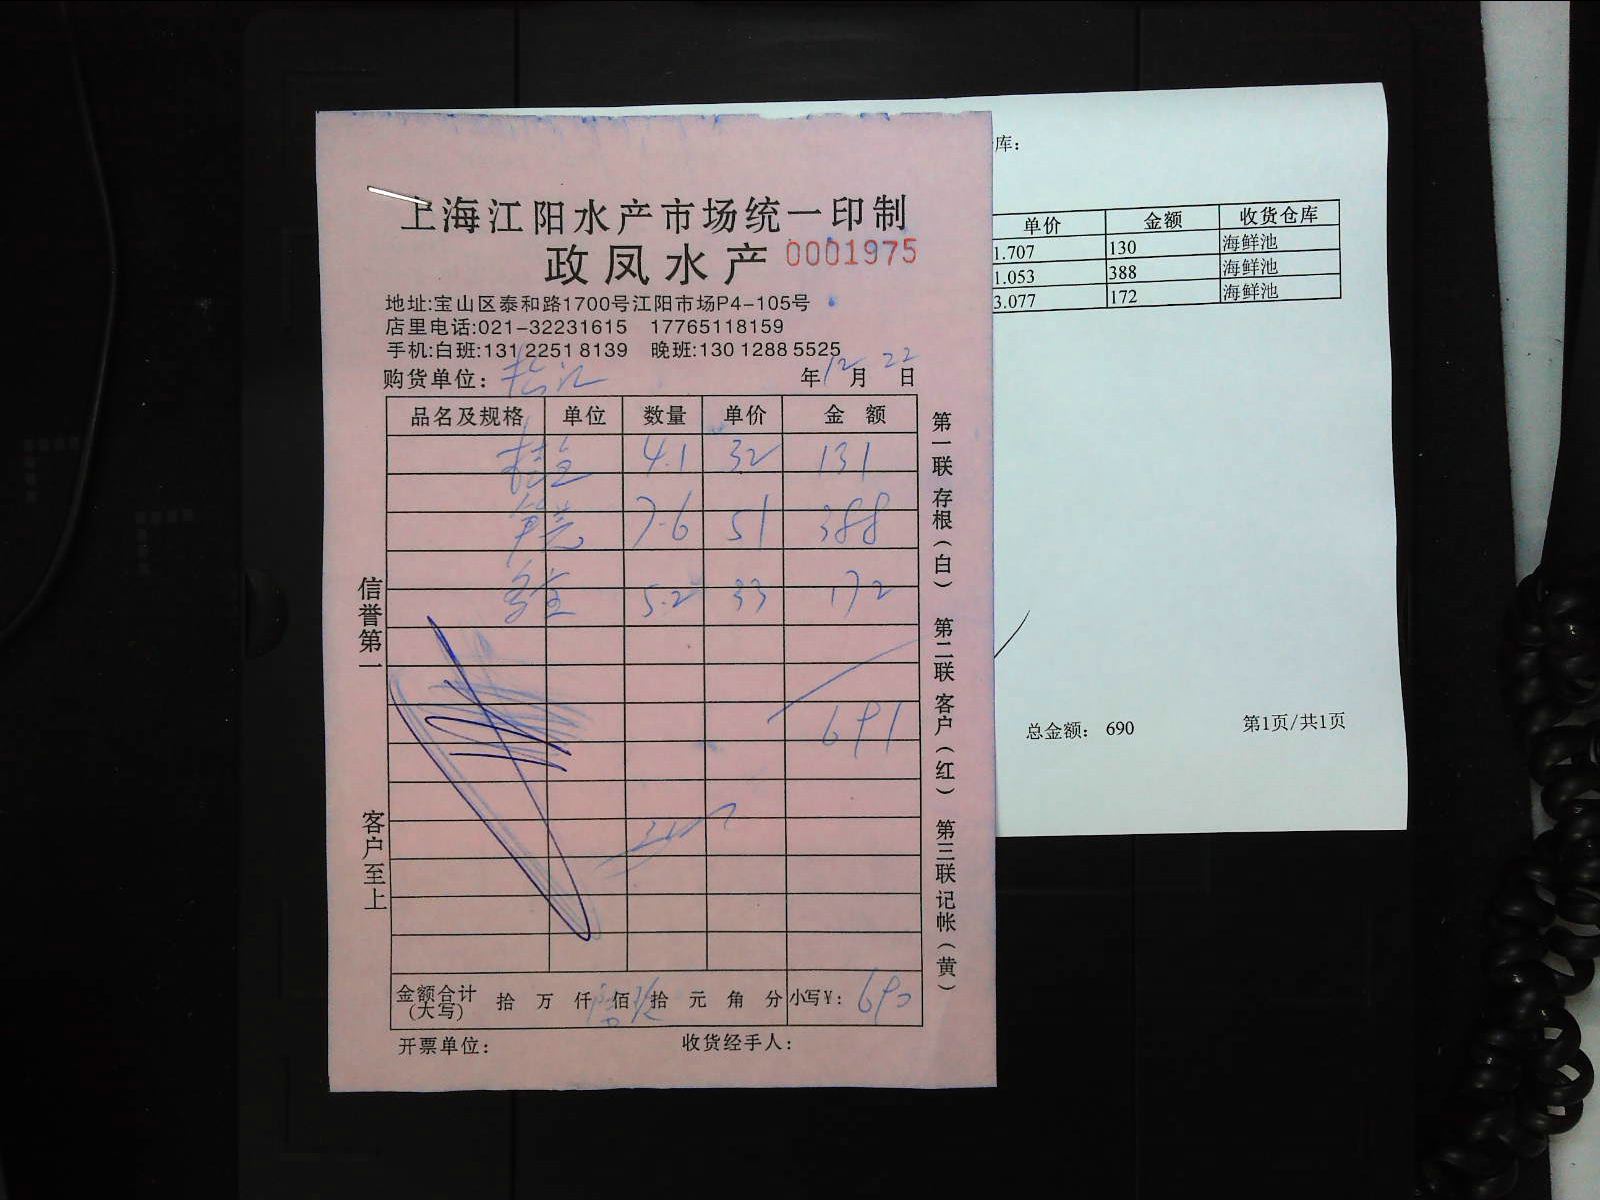 上海江阳水产市场统一印制
政凤水产 0001975
地址:宝山区泰和路1700号江阳市场P4-105号
店里电话:021-32231615 17765118159
手机:白班:131 2251 8139 晚班:130 1288 5525
购货单位: 年12月22日
品名及规格 单位 数量 单价 金 额
4.1 32 131
7.6 51 388
5.2 33 172
691
金额合计(大写) 拾 万 仟 佰 拾 元 角 分 小写¥: 690
开票单位: 收货经手人:
信誉第一
客户至上
第一联 存根(白) 第二联 客户(红) 第三联 记帐(黄)
库:
单价 金额 收货仓库
1.707 130 海鲜池
1.053 388 海鲜池
3.077 172 海鲜池
总金额: 690 第1页/共1页